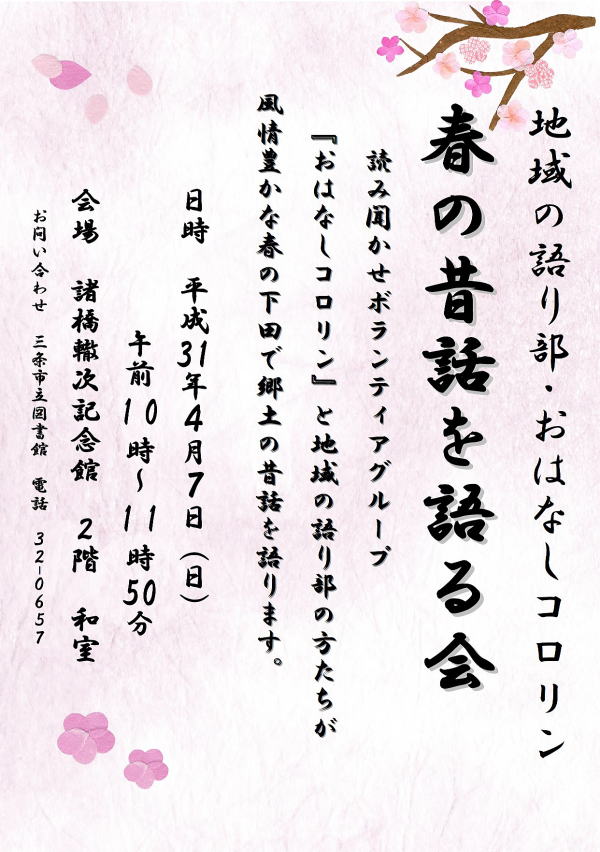 地域の語り部・おはなしコロリン
春の昔話を語る会
読み聞かせボランティアグループ
『おはなしコロリン』と地域の語り部の方たちが
風情豊かな春の下田で郷土の昔話を語ります。
日時　平成31年4月7日（日）
午前10時～11時50分
会場　諸橋轍次記念館　2階　和室
お問い合わせ　三条市立図書館　電話　32-0657